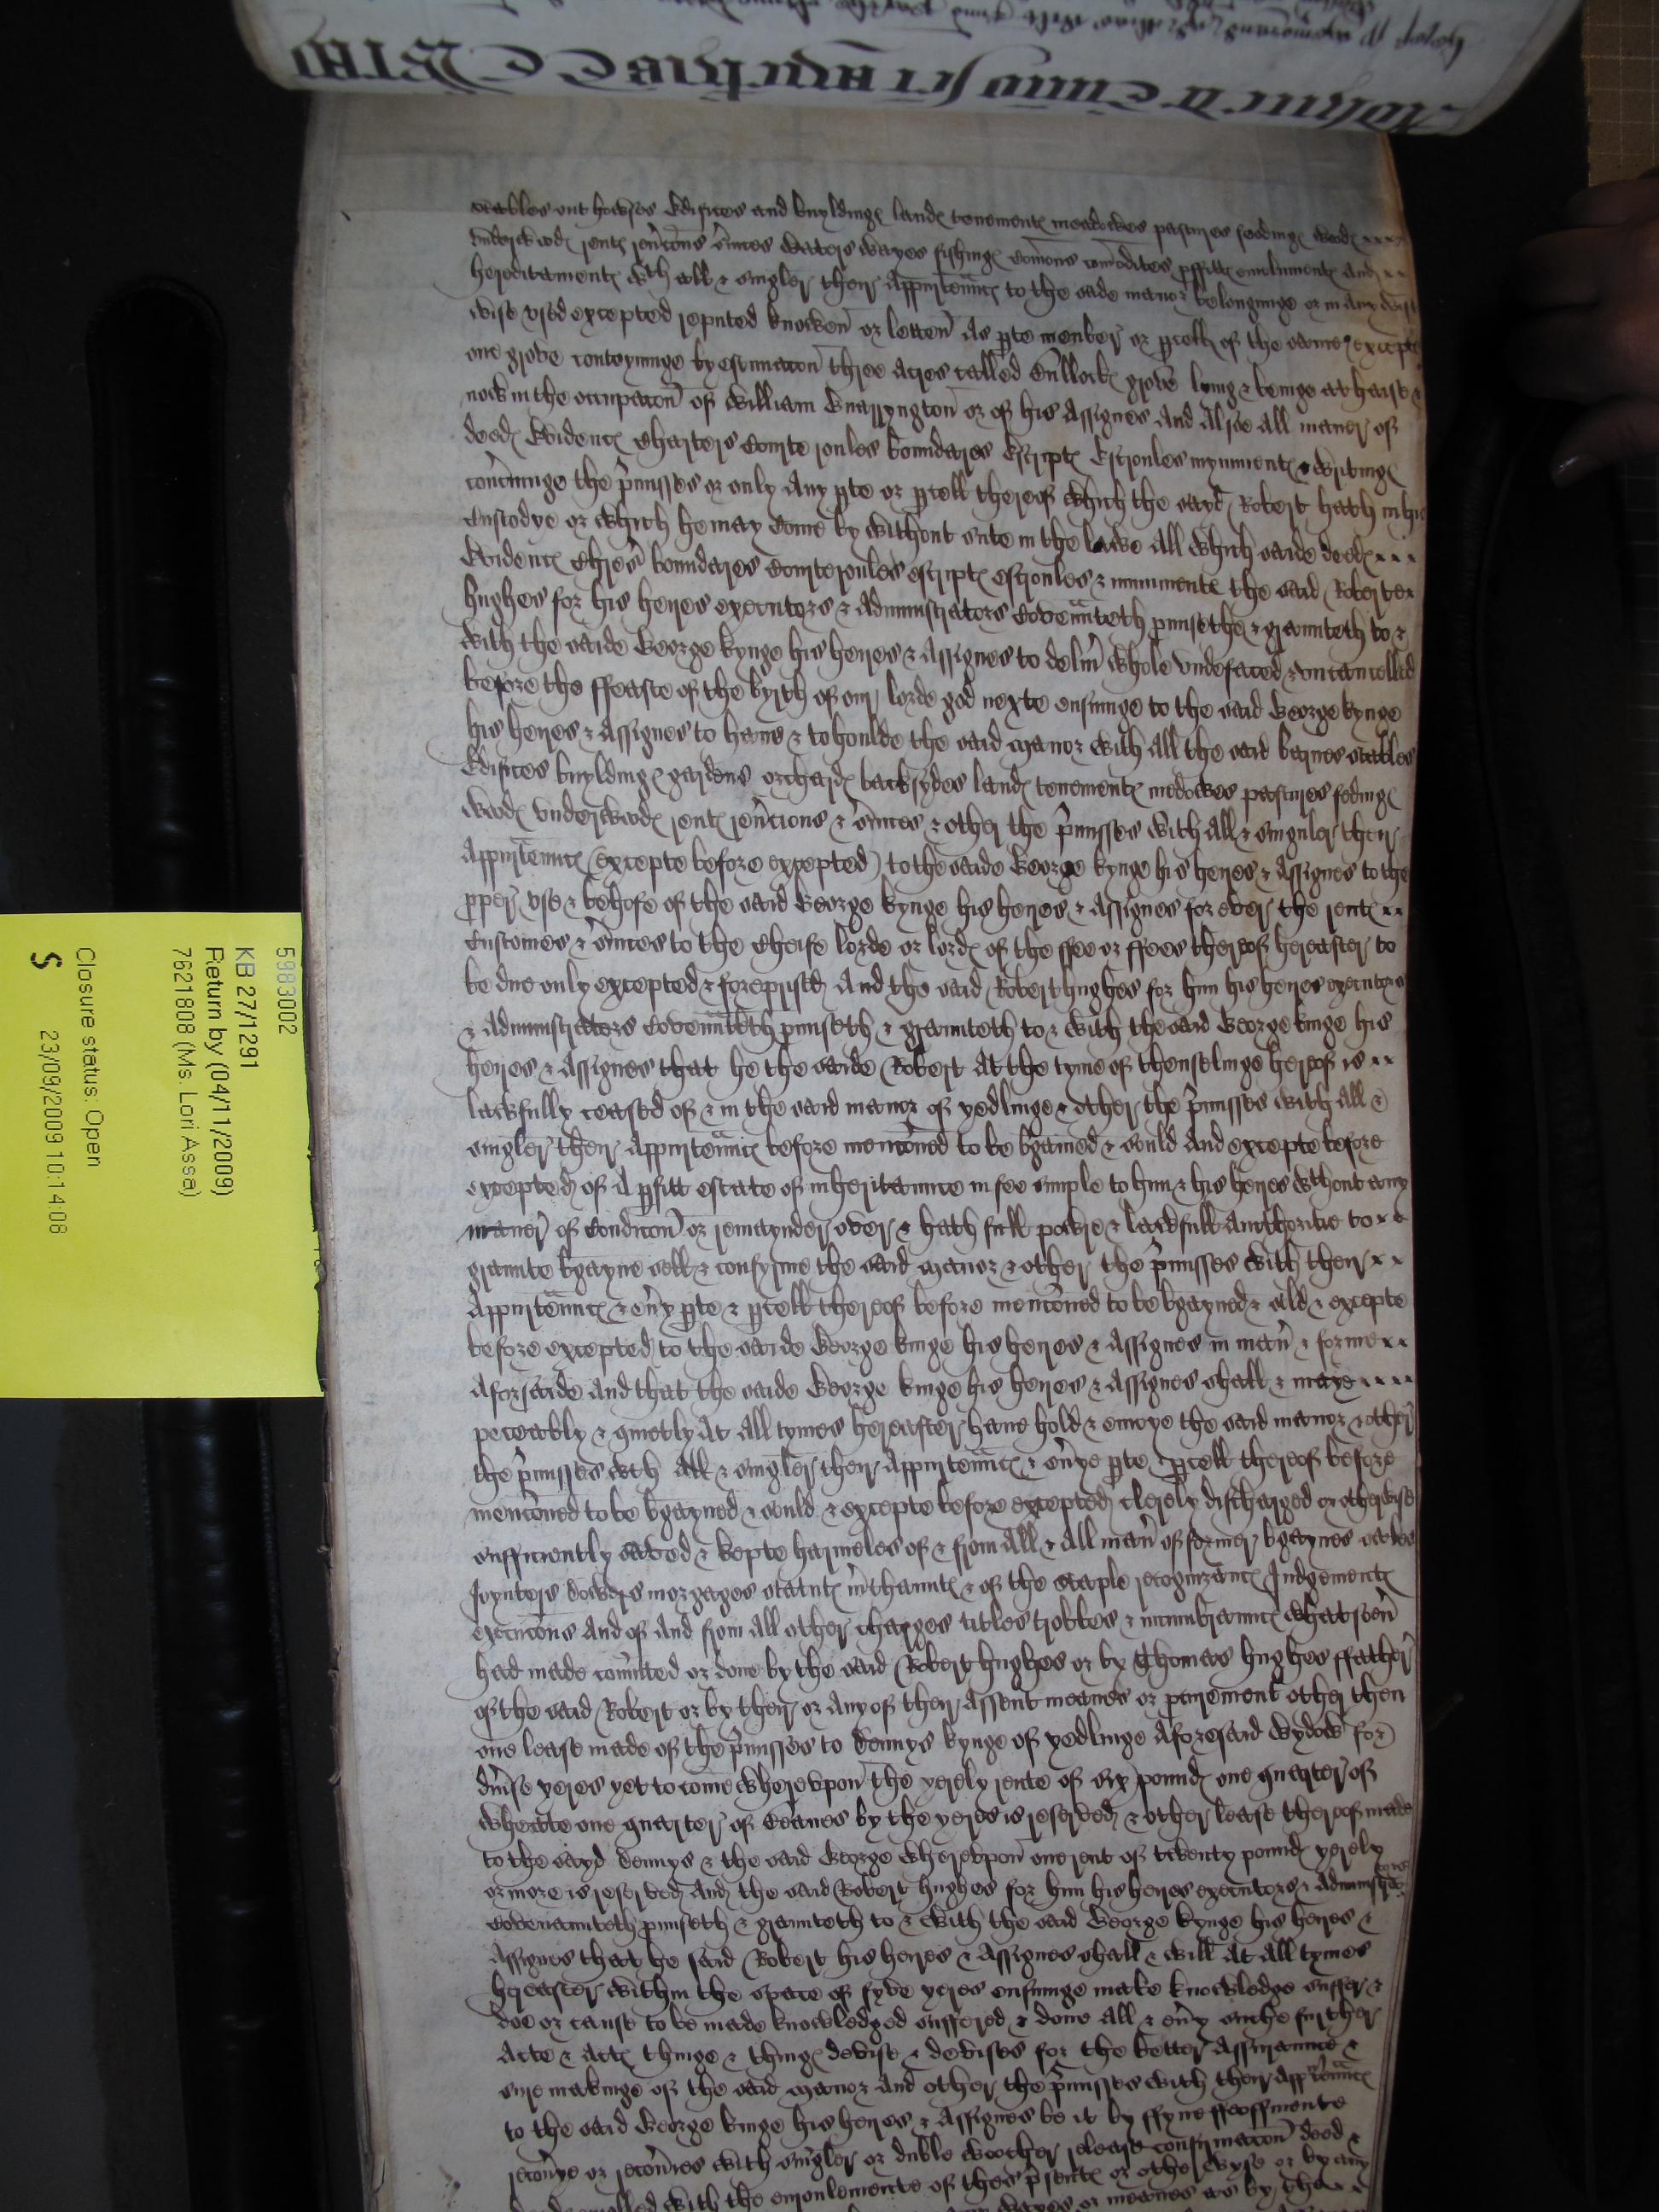 stables out howses Edifices and buyldinge landes tenementes meadowes pastures feedinge woodes
underwoodes rentes revercons services Waters wayes fishinge Comons comodities proffitte emolumentes And
hereditamentes wth all & singler their Appurtenances to the saide manor belonginge or in any
wise used excepted reputed knowen or letten As parte member or parcell of the same excepte
one grove conteyninge by estimacon three Acres called Bullockes grove lying & beinge at
now in the occupacon of William Enaryngton or of his Assignes And Alsoe All maner of
deedes Evidences Charters Courte roules boundaries Escriptes Escroules mynumentes & writinges
concerninge the premisses or only Any parte or parcell thereof which the sayd Robert hath in his
Custodye or which he may Come by without suite in the lawe All which saide deedes
Evidences Chres boundaries Courteroules escriptes escroules & munimentes the said Robert
hughes for his heyres executors & Administrators Covenanteth promiseth & graunteth to &
with the saide George kynge his heyres & Assignes to deliver whole undefaced & uncancelled
before the ffeaste of the byrth of our lorde god nexte ensuinge to the said George kynge
his heyres & Assignes to have & to houlde the said manor with All the said barnes stables
Edifices buyldinges gardens orchardes backsydes landes tenementes medowes pastures fedinges
woodes underwoodes rentes revercions & services & other the premisses with All & singuler their
Appurtenances (excepte before excepted) to the saide George kynge his heyres & Assignes to the
proper use & behofe of the said George kynge his heyres & Assignes for ever the rentes
Customes & services to the Cheife lorde or lordes of the ffee or ffees thereof hereafter to
be due only excepted & foreprised And the said Robert hughes for him his heyres executors
& Administrators Covenanteth promiseth & graunteth to & with the said George kinge his
heyres & Assignes that he the saide Robert At the tyme of thenselinge hereof is
lawfully ceased of & in the said manor of yedlinge & other the premisses with All &
singler their Appurtenances before mencioned to be bgained & sould And excepte before
excepted of A perfitt estate of inheritaunce in fee simple to him & his heyres wthout any
maner of Condicon or remaynder over & hath full powre & lawfull Aucthoritie to
graunte bgayne sell & confyrme the said manor & other the premisses with their
Appurtenances & every parte & parcell thereof before mencioned to be bgayned & sold & excepte
before excepted to the saide George kinge his heyres & Assignes in maner & forme
Aforsaide And that the saide George kinge his heyres & Assignes shall & maye
peceably & quietly At All tymes hereafter have hold & enioye the said manor & other
the premisses wth All & singler their Appurtenances & everye parte parcell thereof before
mencioned to be bgayned & sould & excepte before excepted clerely discharged or otherwise
sufficiently saved & kepte harmeles of & from All & All maner of former bgaynes sales
Joynters dowers morgages statutes merchauntes & of the staple recognizances Judgementes
execucons And of And from All other charges titles trobles & incumbraunces whatsoever
had made comitted or done by the said Robert hughes or by Thomas hughes ffather
of the said Robert or by their or Any of their Assent meanes or procurement other then
one lease made of the premisses to dennys kynge of yedlinge Aforesaid wydow for
diverse yeres yet to come whereupon the yerely rente of six poundes one quarter of
wheate one quarter of beanes by the yeres is reserved & other lease thereof made
to the sayd dennys & the said George whereupon one rent of twenty poundes yerely
or more is reserved And the said Robert hughes for him his heyres executors & Administrators
Covenaunteth promiseth & graunteth to & with the said George kynge his heyres &
Assignes that he said Robert his heyres & Assignes shall & will At All tymes
hereafter within the space of fyve yeres ensuinge make knowledge suffer &
doe or cause to be made knowledged suffered & done All & every suche further
Acte & Actes thinge & thinges devise & devises for the better Assuraunce &
sure makinge of the said manor And other the premisses with their Appurtenances
to the said George kinge his heyres & Assignes be it by ffyne ffeoffmente
recovrye or recovries with singler or duble woucher release confirmacon deed &
enrolled with the enroulemente of thes presentes or other wyse or by any
wayes or meanes as by the
5983002
KB 27/1291
Return by (04/11/2009)
7621808 (Ms. Lori Assa)
Closure status: Open
S
23/09/2009 10:14:08